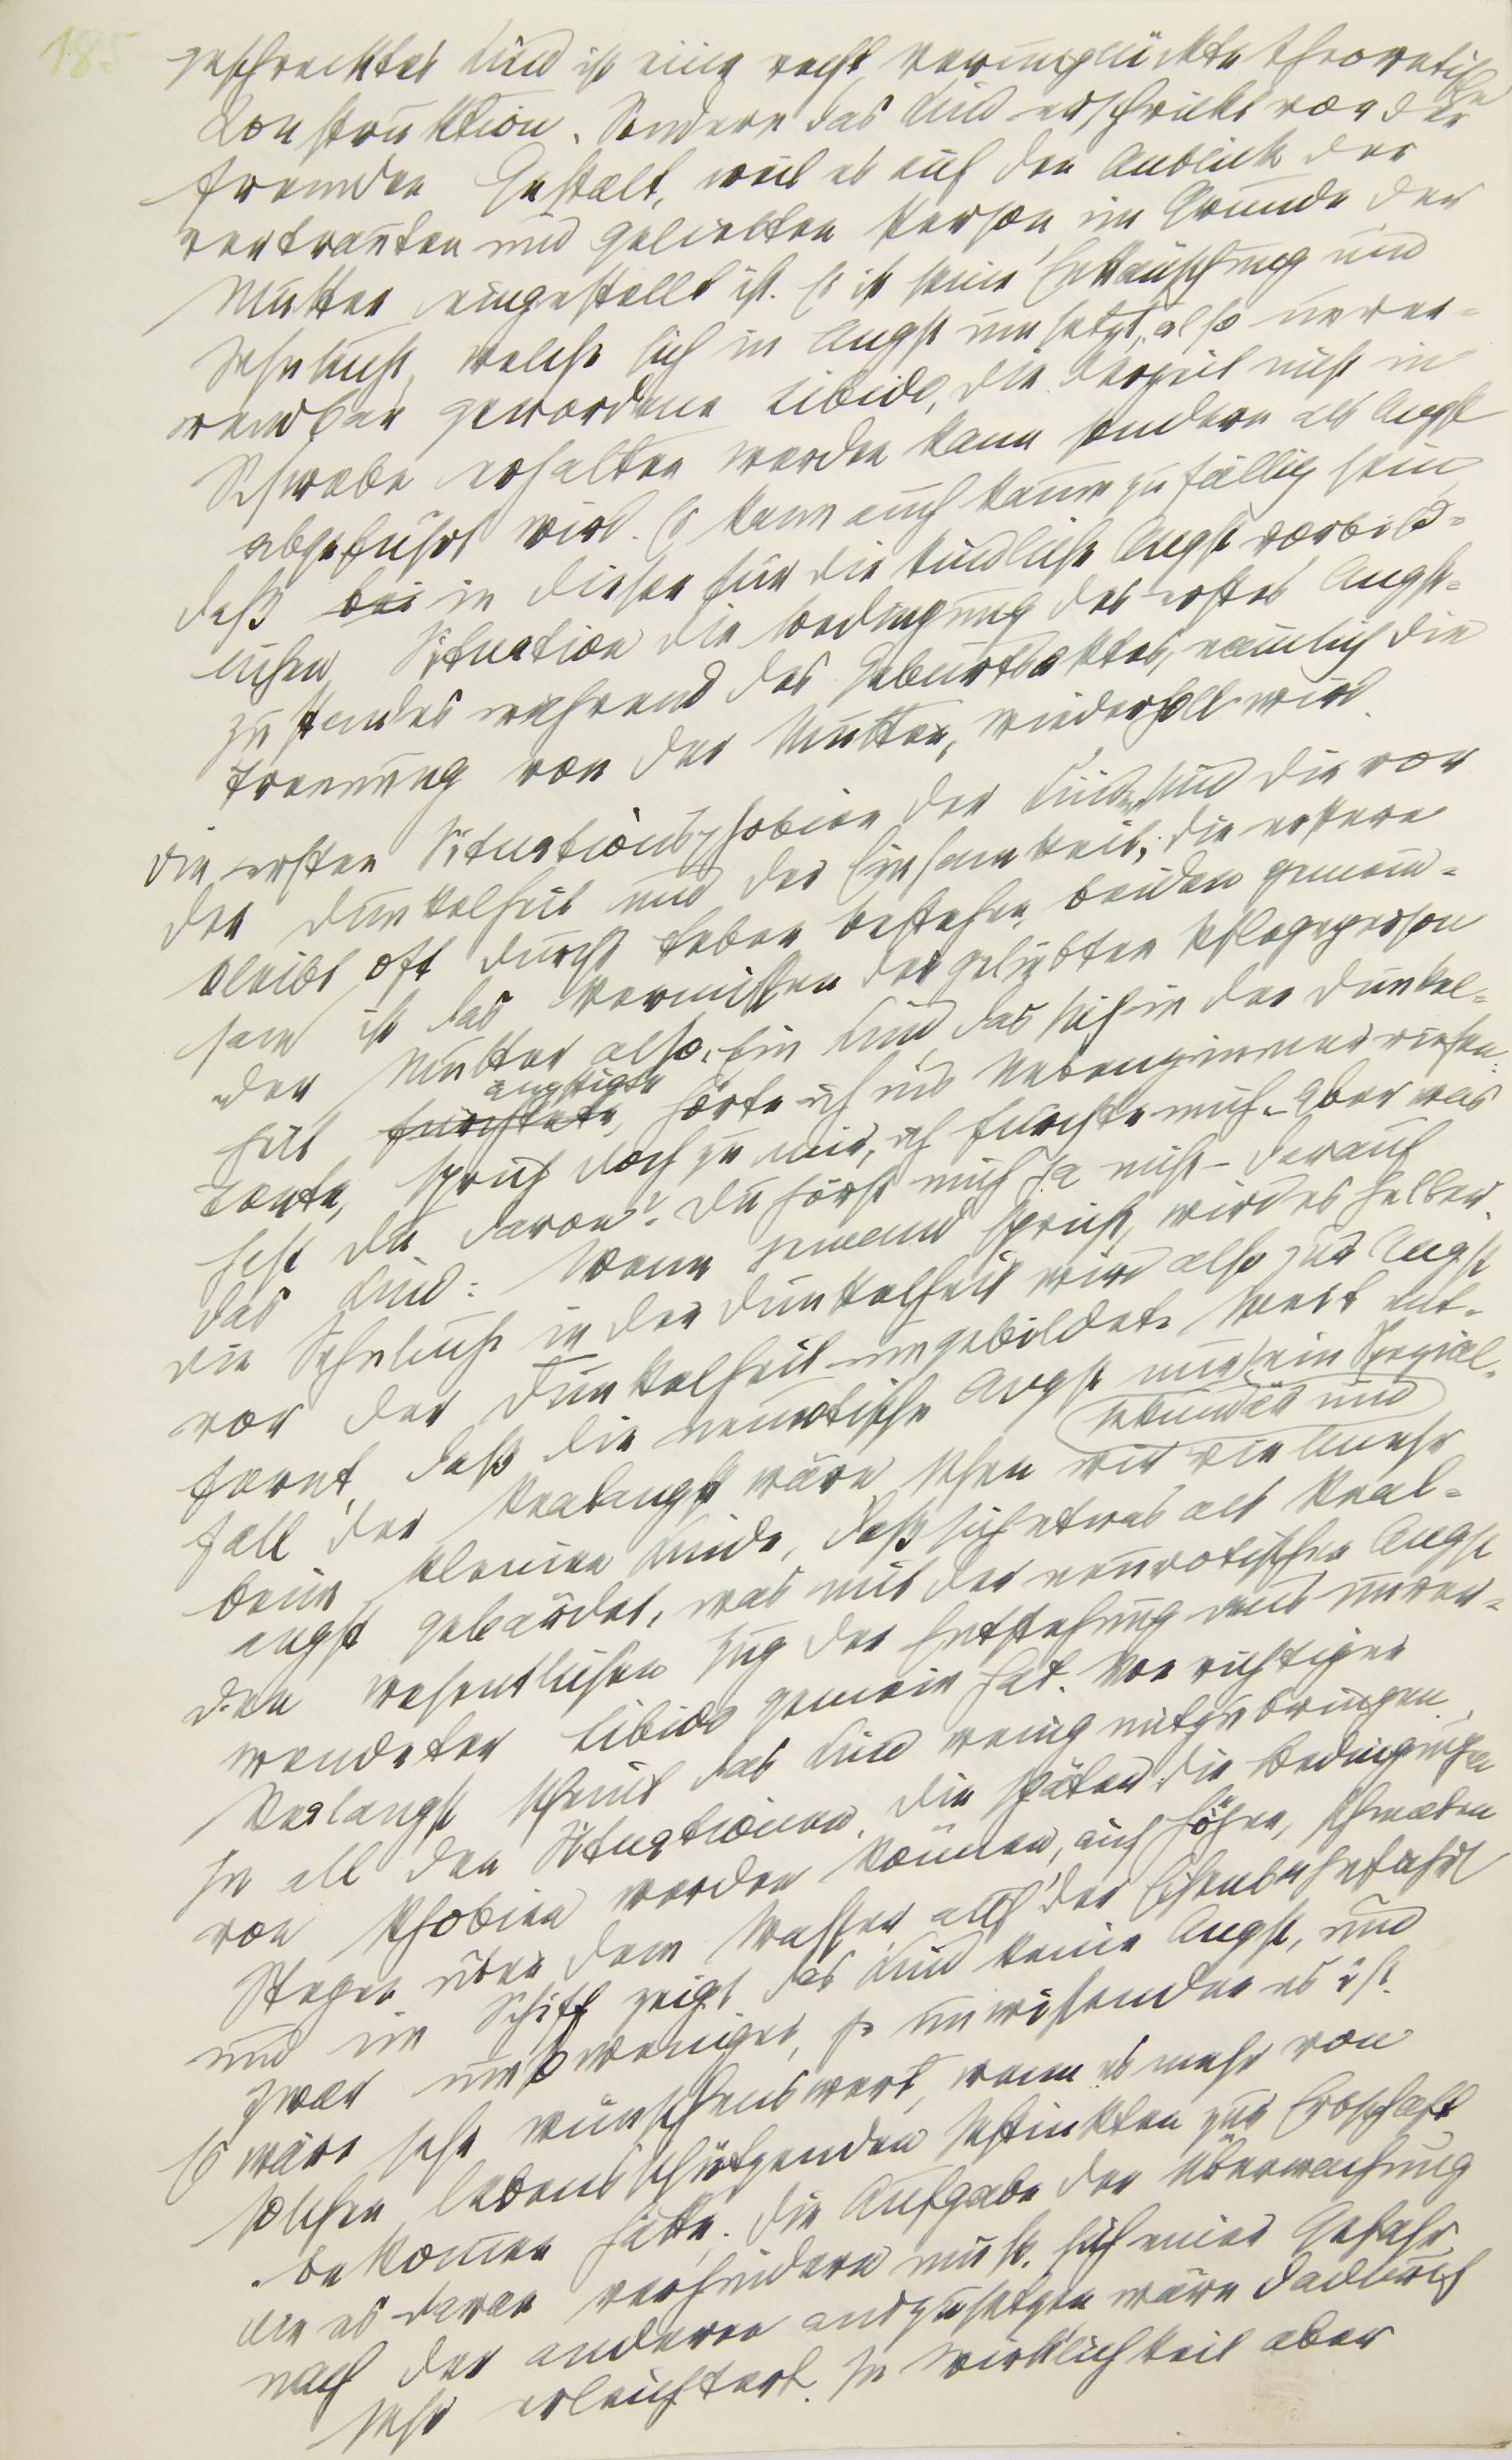 185
geschrecktes Kind ist eine recht verunglückte theoretische
Konstruktion. Sondern das Kind erschrickt vor der
fremden Gestalt, weil es auf den Anblick der
vertrauten und geliebten Person im Grunde der
Mutter eingestellt ist. Es ist seine Enttäuschung und
Sehnsucht, welche sich in Angst umsetzt, also unver=
wendbar gewordene Libido, die derzeit nicht in
Schwebe erhalten werden kann sondern als Angst
abgeführt wird. Es kann auch kaum zufällig sein,
daß bei in dieser für die kindliche Angst vorbild=
lichen Situation die Bedingung des ersten Angst=
zustandes während des Geburtsaktes, nämlich die
Trennung von der Mutter, wiederholt wird.
Die ersten Situationsphobien der Kinder sind die vor
der Dunkelheit und der Einsamkeit; die erstere
bleibt oft durchs Leben bestehen, beiden gemein=
sam ist das Vermissen der geliebten Pflegeperson
der Mutter also. Ein Kind, das sich in der Dunkel=
ängstigte
heit fürchtete, hörte ich ins Nebenzimmer rufen:
Tante, sprich doch zu mir, ich fürchte mich. Aber was
hast du davon? Du hörst mich ja nicht – darauf
das Kind: Wenn jemand spricht, wird es heller.
Die Sehnsucht in der Dunkelheit wird also zur Angst
vor der Dunkelheit umgebildet. Weit ent=
fernt, daß die neurotische Angst nur ein Spezial=
sekundär und
fall der Realangst wäre, sehen wir vielmehr
beim kleinen Kinde, daß sich etwas als Real=
angst gebärdet, was mit der neurotischen Angst
den wesentlichen Zug der Entstehung aus unver=
wendeter Libido gemein hat. Von richtiger
Realangst scheint das Kind wenig mitzubringen.
In all den Situationen, die später die Bedingungen
von Phobien werden können, auf Höhen, schmalen
Stegen über dem Wasser, auf der Eisenbahnfahrt
und im Schiff zeigt das Kind keine Angst, und
zwar umso weniger, je unwissender es ist.
Es wäre sehr wünschenswert, wenn es mehr von
solchen lebensschützenden Instinkten zur Erbschaft
bekommen hätte. Die Aufgabe der Überwachung
die es daran verhindern muß, sich einer Gefahr
nach der anderen auszusetzen wäre dadurch
sehr erleichtert. In Wirklichkeit aber